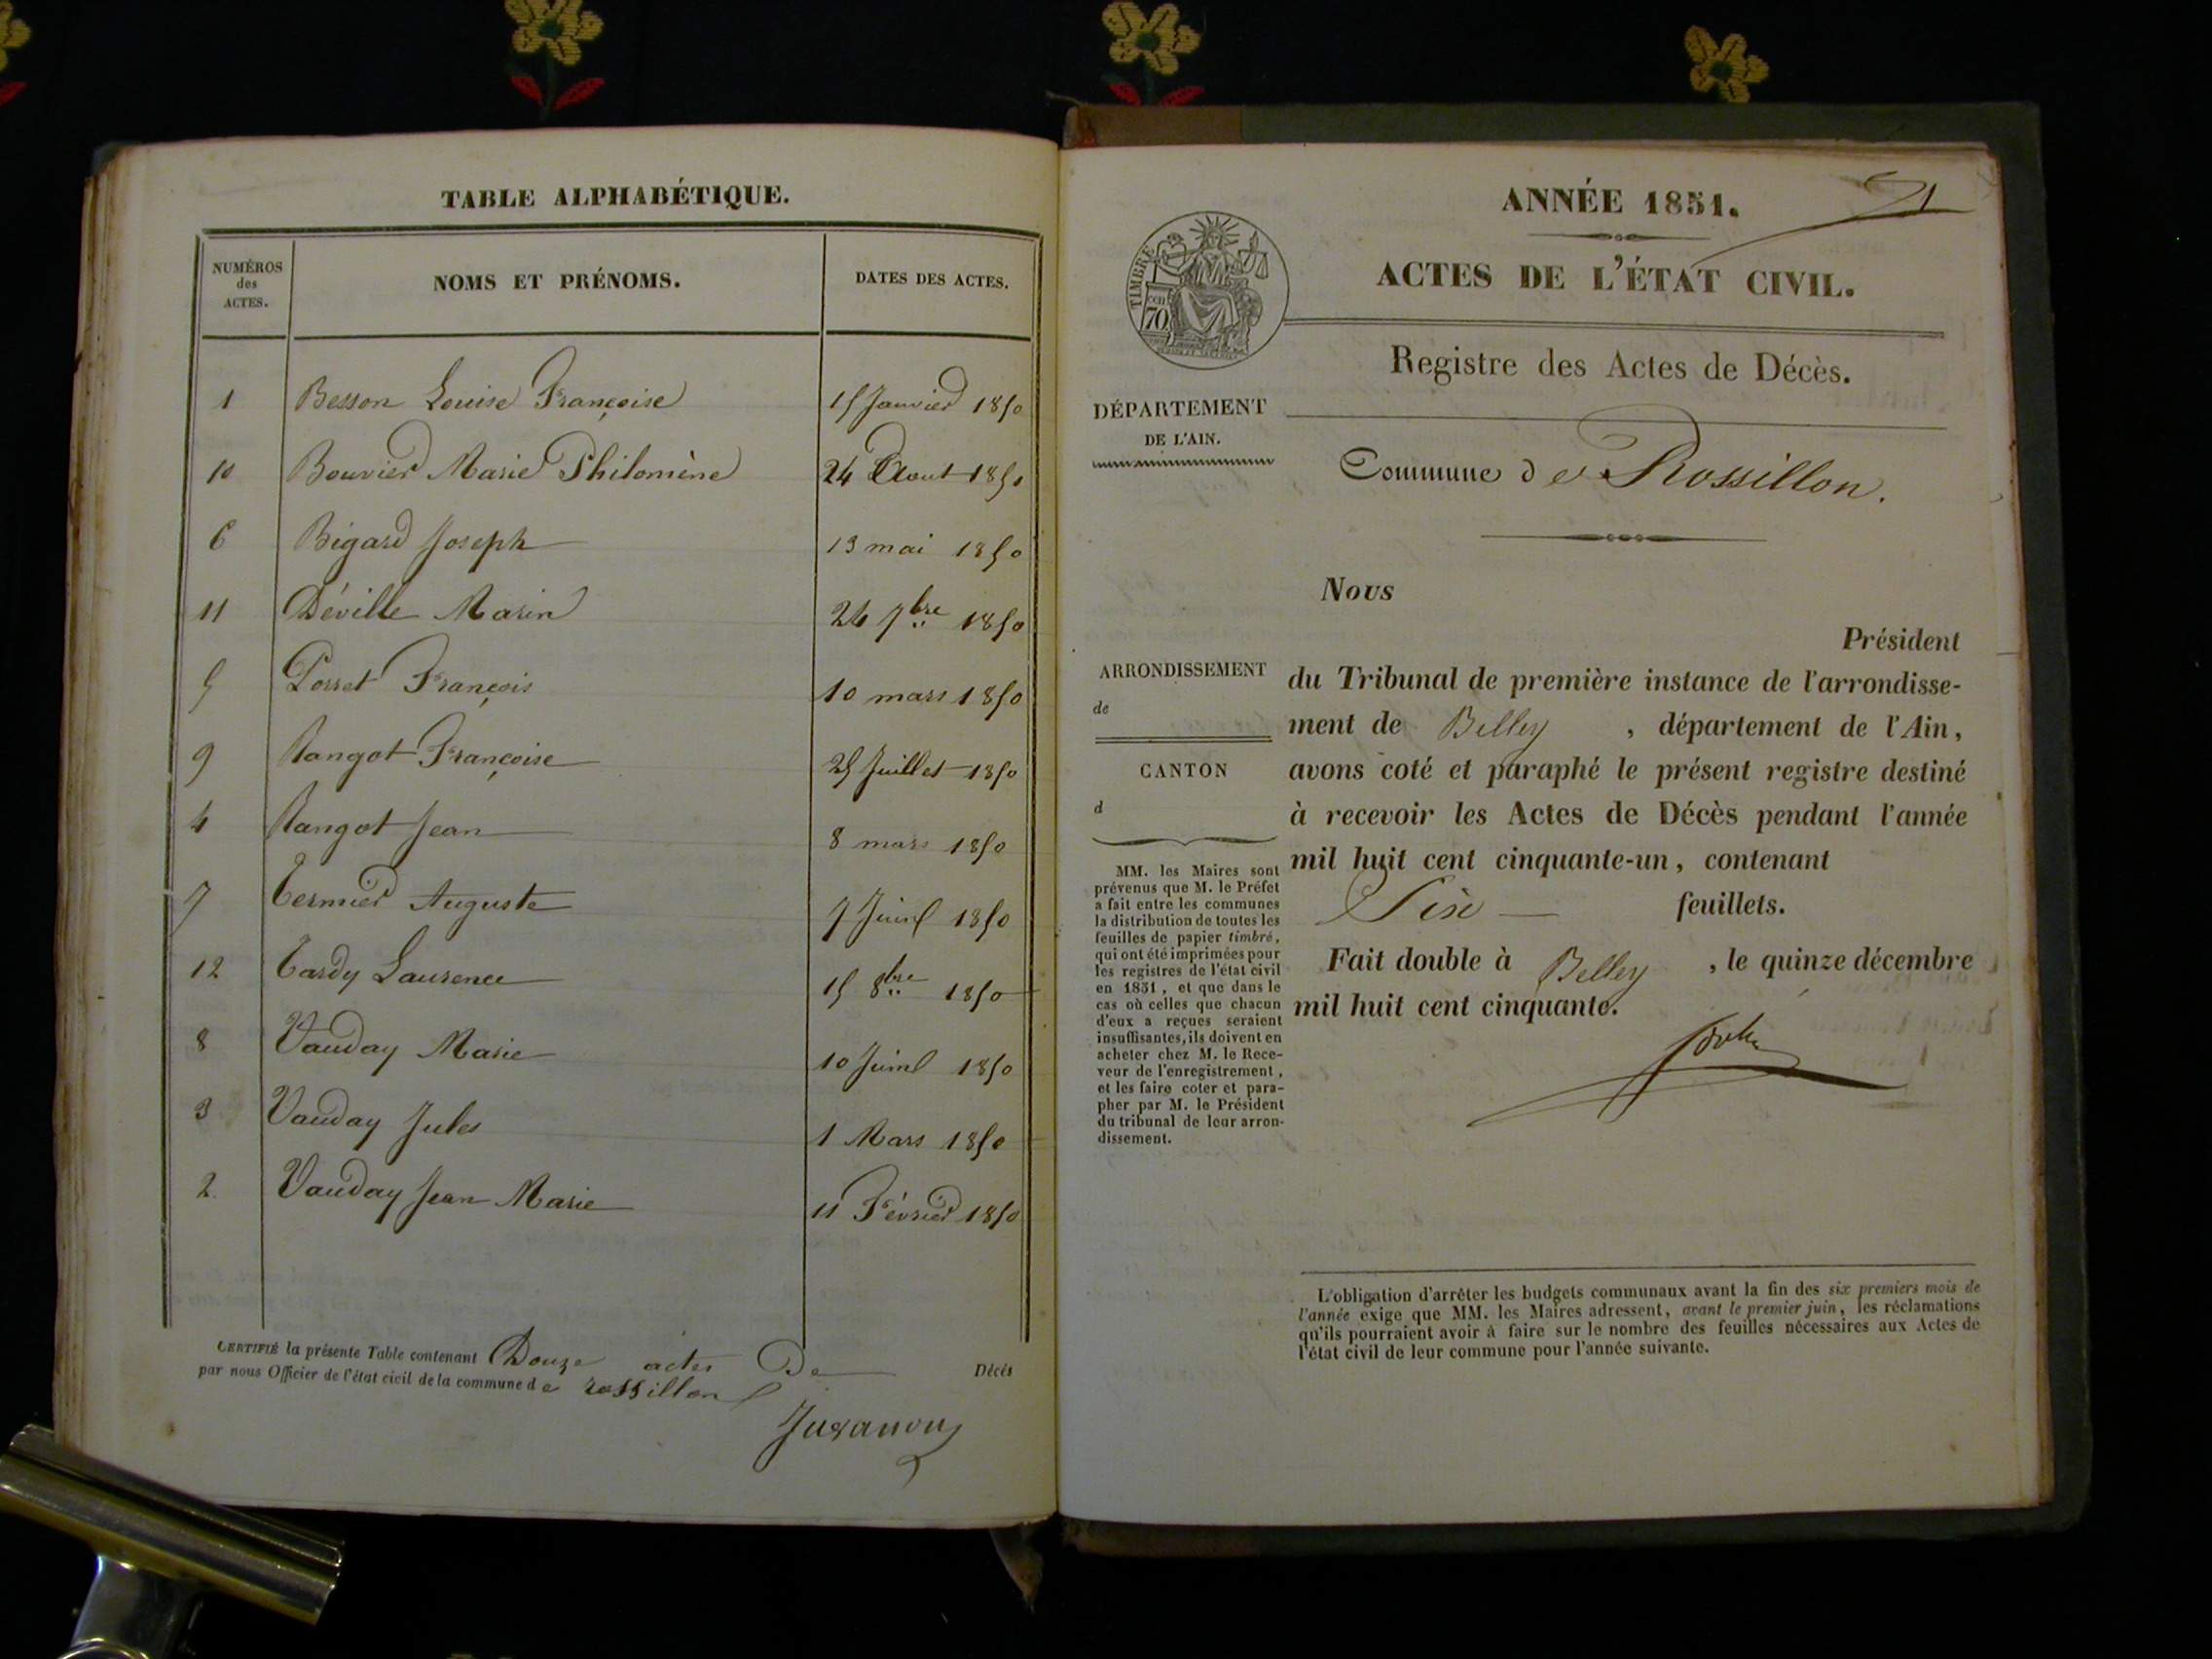 TABLE ALPHABÉTIQUE.
NUMÉROS
des
ACTES.
NOMS ET PRÉNOMS.
DATES DES ACTES.
1 Besson Louise Françoise 15 Janvier 1850
10 Bouvier Marie Philomène 24 Aout 1850
6 Bigard Joseph 13 mai 1850
11 Déville Marin 26 7bre 1850
5 Porret François 10 mars 1850
9 Rangot Françoise 25 Juillet 1850
4 Rangot Jean 8 mars 1850
7 Termier Auguste 7 Juin 1850
12 Tardy Laurence 15 8bre 1850
8 Vauday Marie 10 Juin 1850
3 Vauday Jules 1 Mars 1850
2 Vauday Jean Marie 11 Février 1850
CERTIFIÉ la présente Table contenant Douze actes De Décès
par nous Officier de l'état civil de la commune de rossillon
ANNÉE 1851.
ACTES DE L'ÉTAT CIVIL.
TIMBRE
70
Registre des Actes de Décès.
DÉPARTEMENT
DE L'AIN.
Commune de Rossillon.
Nous
Président
du Tribunal de première instance de l'arrondisse-
ment de Belley, département de l'Ain,
avons coté et paraphé le présent registre destiné
à recevoir les Actes de Décès pendant l'année
mil huit cent cinquante-un, contenant
Six feuillets.
Fait double à Belley, le quinze décembre
mil huit cent cinquante.
ARRONDISSEMENT
de
CANTON
d
MM. les Maires sont
prévenus que M. le Préfet
a fait entre les communes
la distribution de toutes les
feuilles de papier timbré,
qui ont été imprimées pour
les registres de l'état civil
en 1851, et que dans le
cas où celles que chacun
d'eux a reçues seraient
insuffisantes, ils doivent en
acheter chez M. le Rece-
veur de l'enregistrement,
et les faire coter et para-
pher par M. le Président
du tribunal de leur arron-
dissement.
L'obligation d'arrêter les budgets communaux avant la fin des six premiers mois de
l'année exige que MM. les Maires adressent, avant le premier juin, les réclamations
qu'ils pourraient avoir à faire sur le nombre des feuilles nécessaires aux Actes de
l'état civil de leur commune pour l'année suivante.